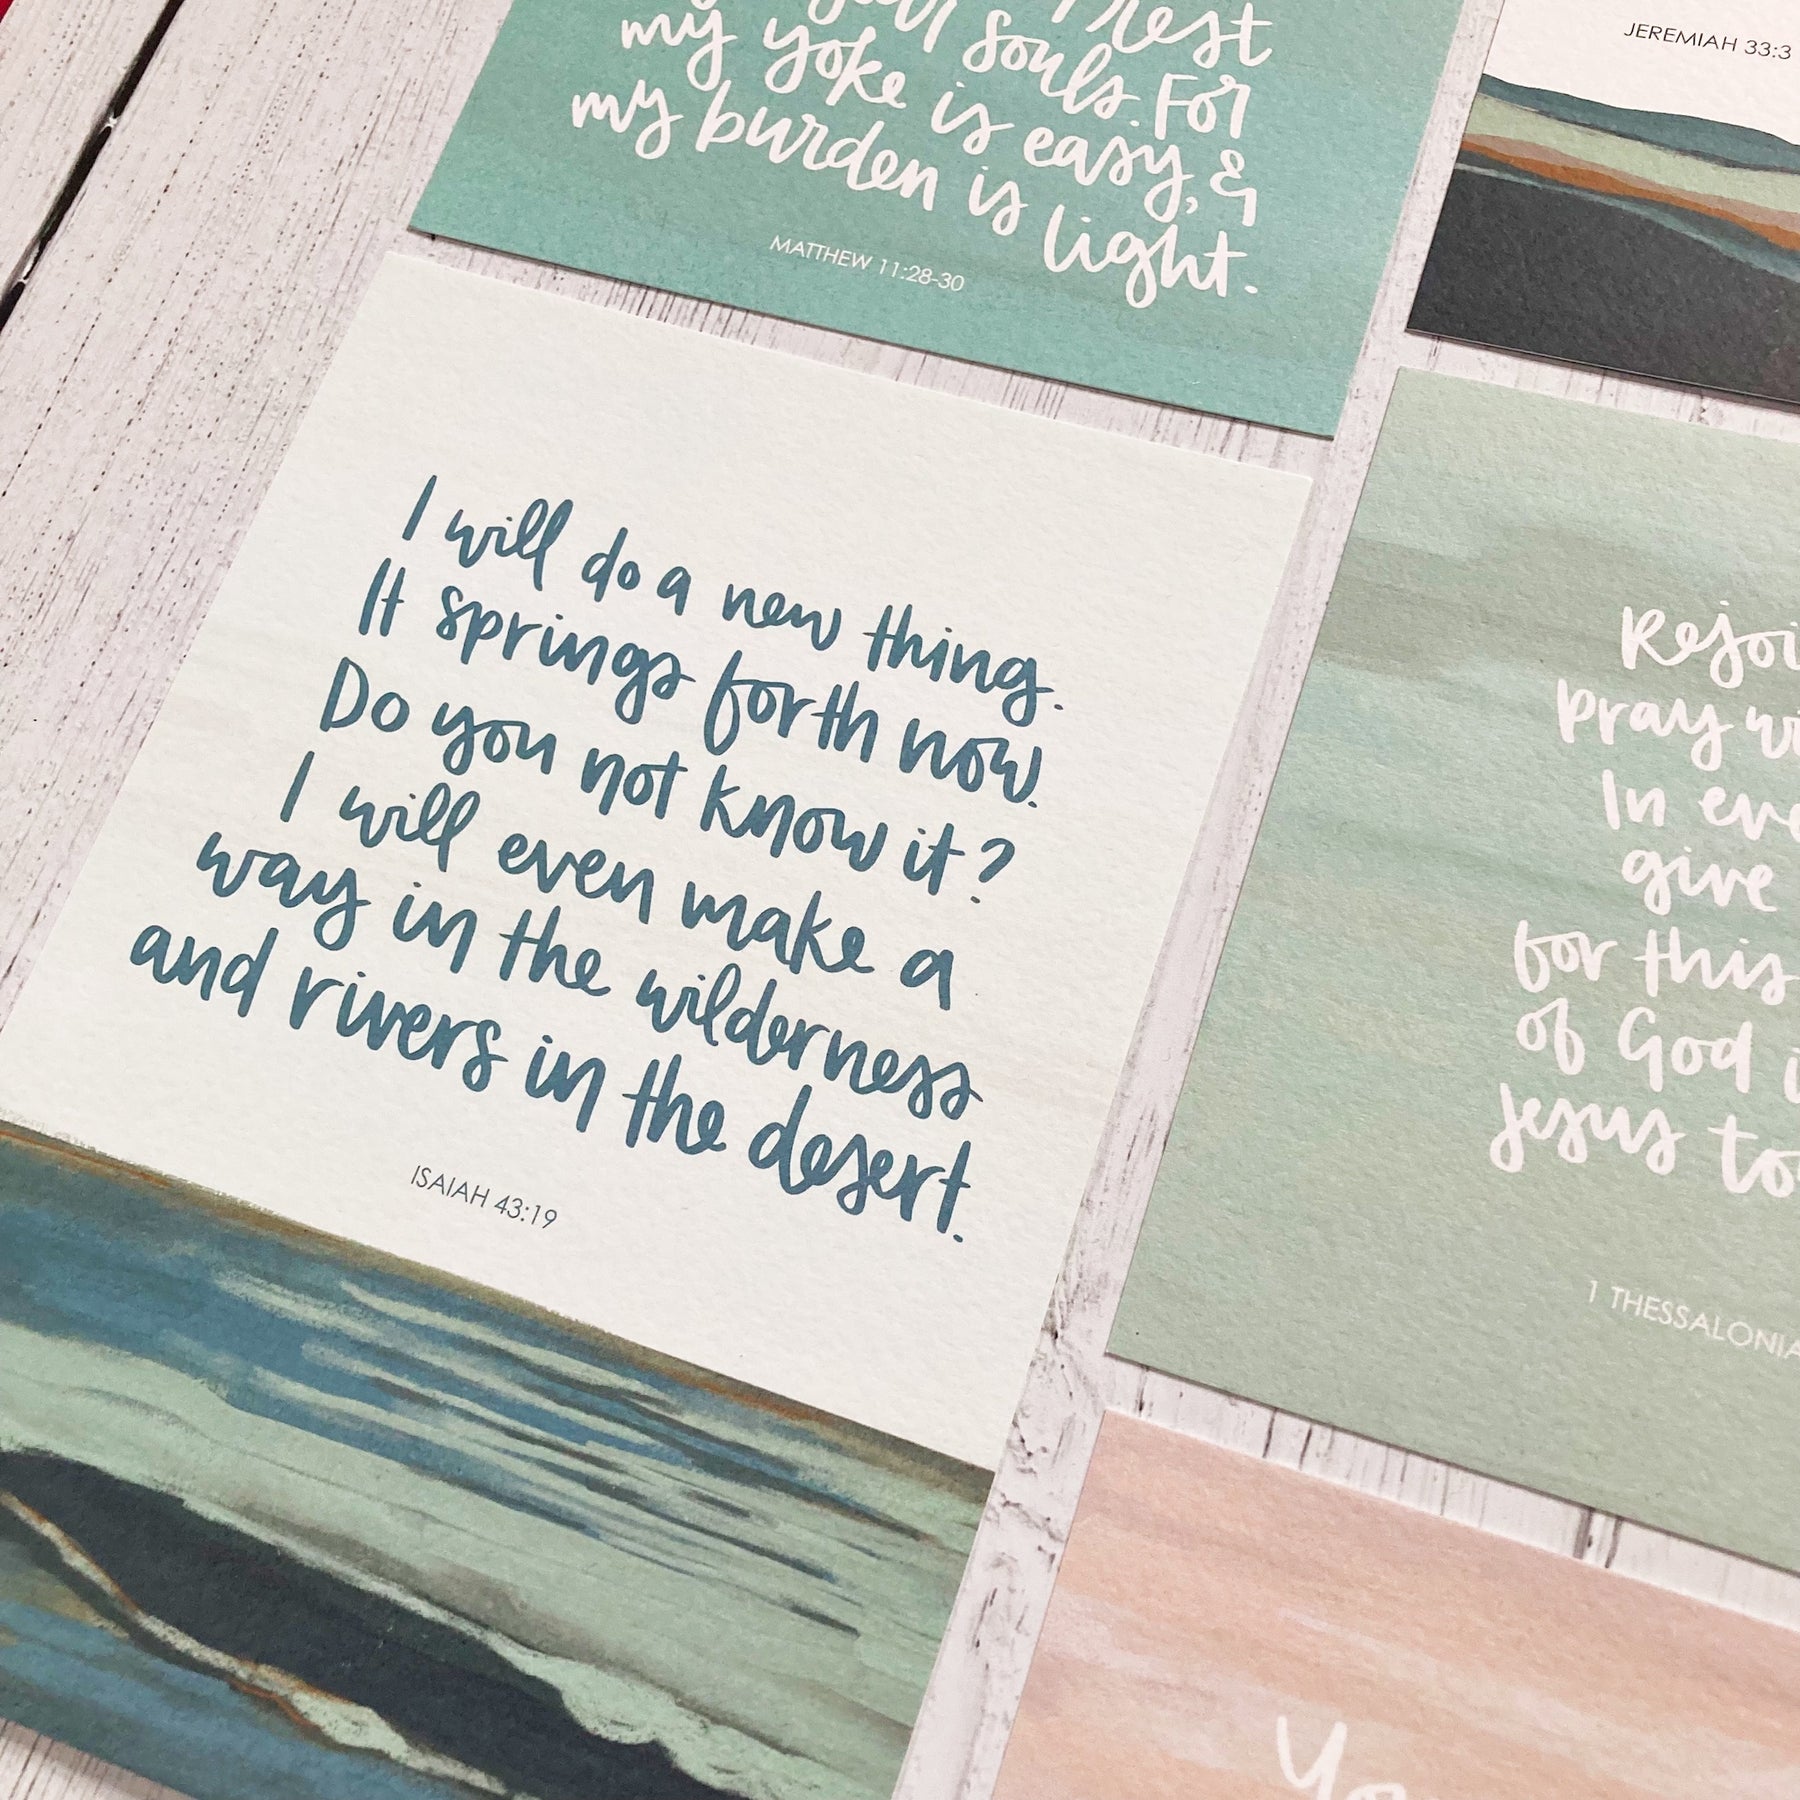 rest
your souls. For
my yoke is easy, &
my burden is light.
MATTHEW 11:28-30
JEREMIAH 33:3
I will do a new thing.
It springs forth now.
Do you not know it?
I will even make a
way in the wilderness
and rivers in the desert.
ISAIAH 43:19
Rejoi
pray wi
In eve
give
for this
of God i
Jesus to
1 THESSALONIA
Yo